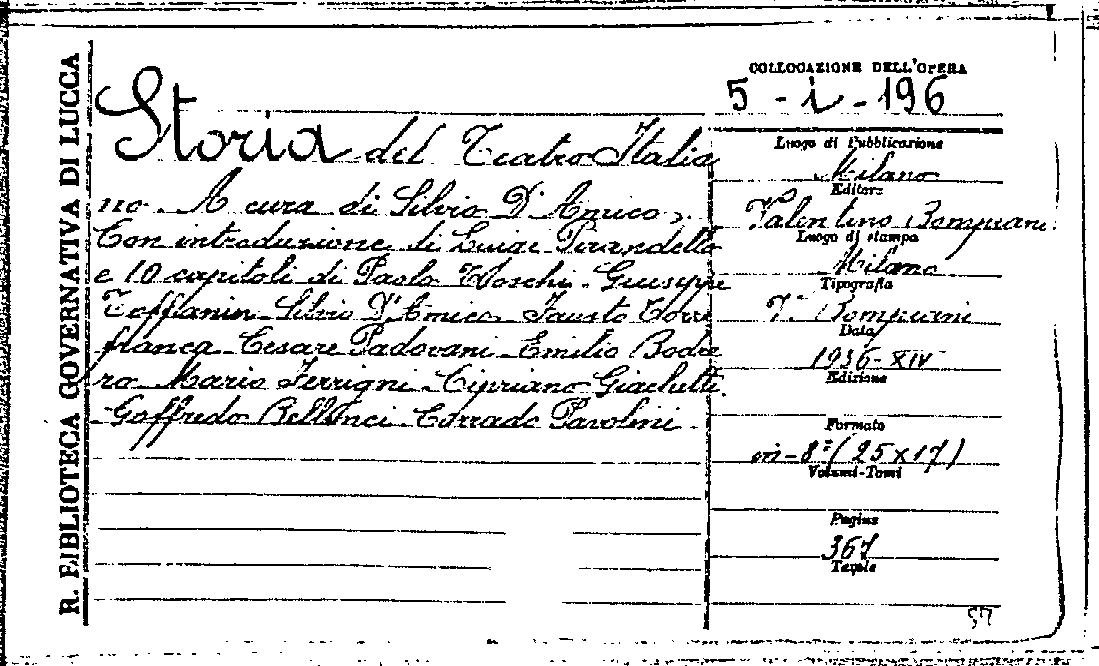 R. BIBLIOTECA GOVERNATIVA DI LUCCA
COLLOCAZIONE DELL'OPERA
5 - i - 196
Storia del Teatro Italia
no. A cura di Silvio D'Amico.
Con introduzione di Luigi Pirandello
e 10 capitoli di Paolo Toschi - Giuseppe
Toffanin - Silvio D'Amico - Fausto Torre
franca - Cesare Padovani - Emilio Bodre
ro - Mario Ferrigni - Cipriano Giachetti
- Goffredo Bellonci - Corrado Pavolini -
Luogo di Pubblicazione
Milano
Editore
Valentino Bompiani
Luogo di stampa
Milano
Tipografia
V. Bompiani
Data
1936-XIV
Edizione
Formato
in-8° (25x17)
Volumi-Tomi
Pagine
367
Tavole